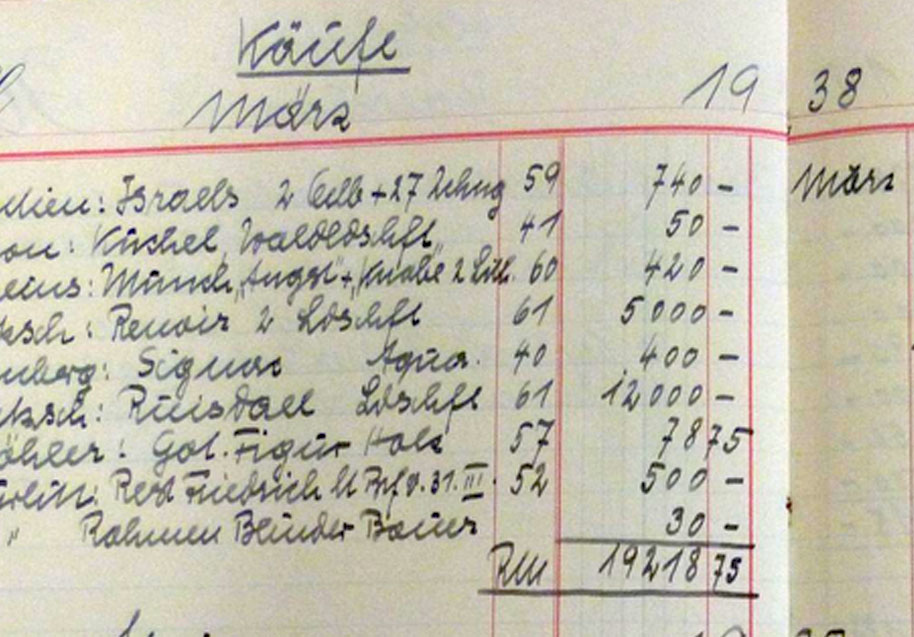 Käufe
März 19 38
Israels 2 Ölb + 27 Zchng 59 740 – März
Küchel, Waldldschft 41 50 –
Munch "Angst" + "Knabe" 2 Lith. 60 420 –
Renoir 2 Ldschft 61 5000 –
nberg: Signac Aqua. 40 400 –
Ruisdael Ldschft 61 12000 –
öhler: Got. Figur Holz 57 78 75
Friedrich v. 31. III. 52 500 –
" Rahmen Blinder Bauer 30 –
RM 19218 75